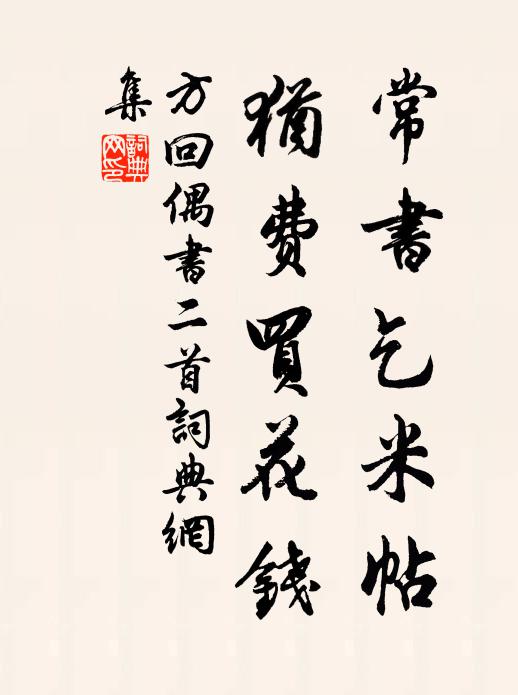 常書乞米帖
猶費買花錢
方回偶書二首詞典網
集
詞典網印